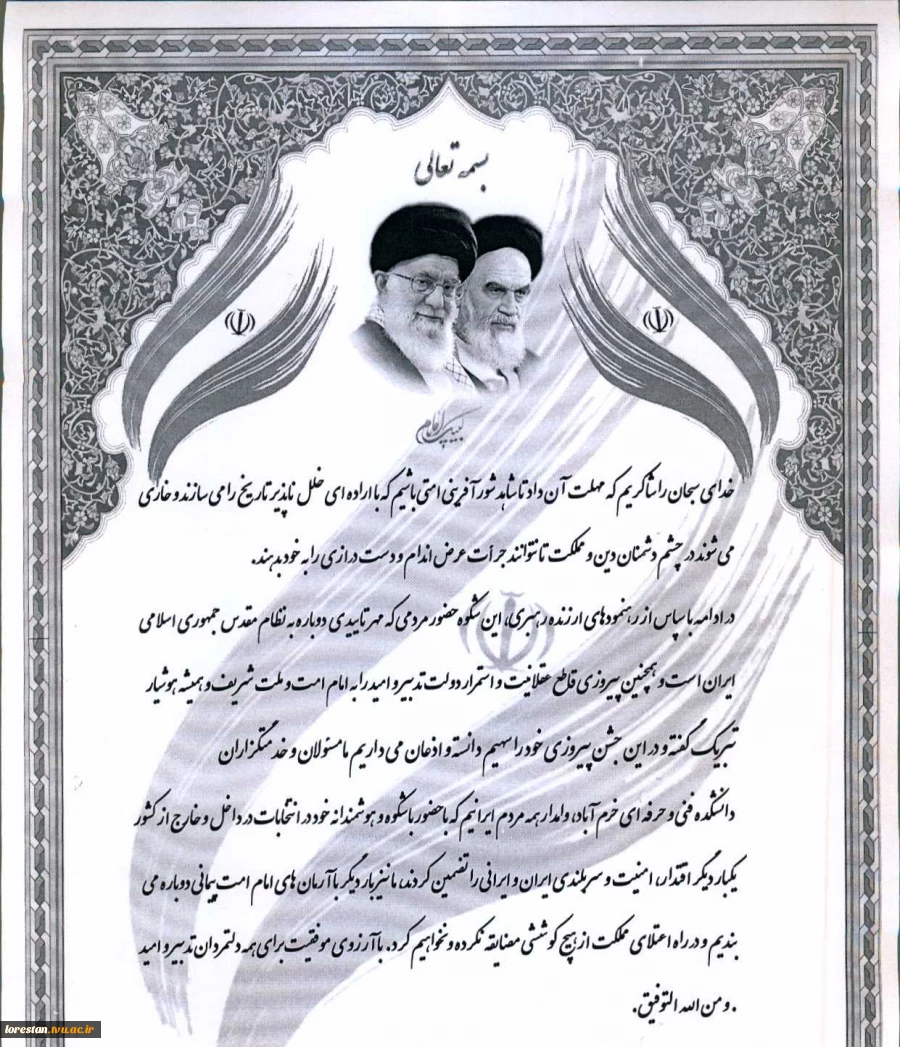 بسمه تعالی
لبیک یا امام
خدای سبحان را شاکریم که مهلت آن داد تا شاهد شور آفرینی امتی باشیم که با اراده ای خلل ناپذیر تاریخ را می سازند و خاری
می شوند در چشم دشمنان دین و مملکت تا نتوانند جرأت عرض اندام و دست درازی را به خود بدهند.
در ادامه با سپاس از رهنمودهای ارزنده رهبری، این شکوه حضور مردمی که مهر تاییدی دوباره به نظام مقدس جمهوری اسلامی
ایران است و همچنین پیروزی قاطع عقلانیت و استمرار دولت تدبیر و امید را به امام امت و ملت شریف و همیشه هوشیار
تبریک گفته و در این جشن پیروزی خود را سهیم دانسته و اذعان می داریم ما مسئولان و خدمتگزاران
دانشکده فنی و حرفه ای خرم آباد، وامدار همه مردم ایرانیم که با حضور باشکوه و هوشمندانه خود در انتخابات در داخل و خارج از کشور
یکبار دیگر اقتدار، امنیت و سربلندی ایران و ایرانی را تضمین کردند، ما نیز بار دیگر با آرمان های امام امت پیمانی دوباره می
بندیم و در راه اعتلای مملکت از هیچ کوششی مضایقه نکرده و نخواهیم کرد. با آرزوی موفقیت برای همه دلتمردان تدبیر و امید
. و من الله التوفیق.
lorestan.tvu.ac.ir